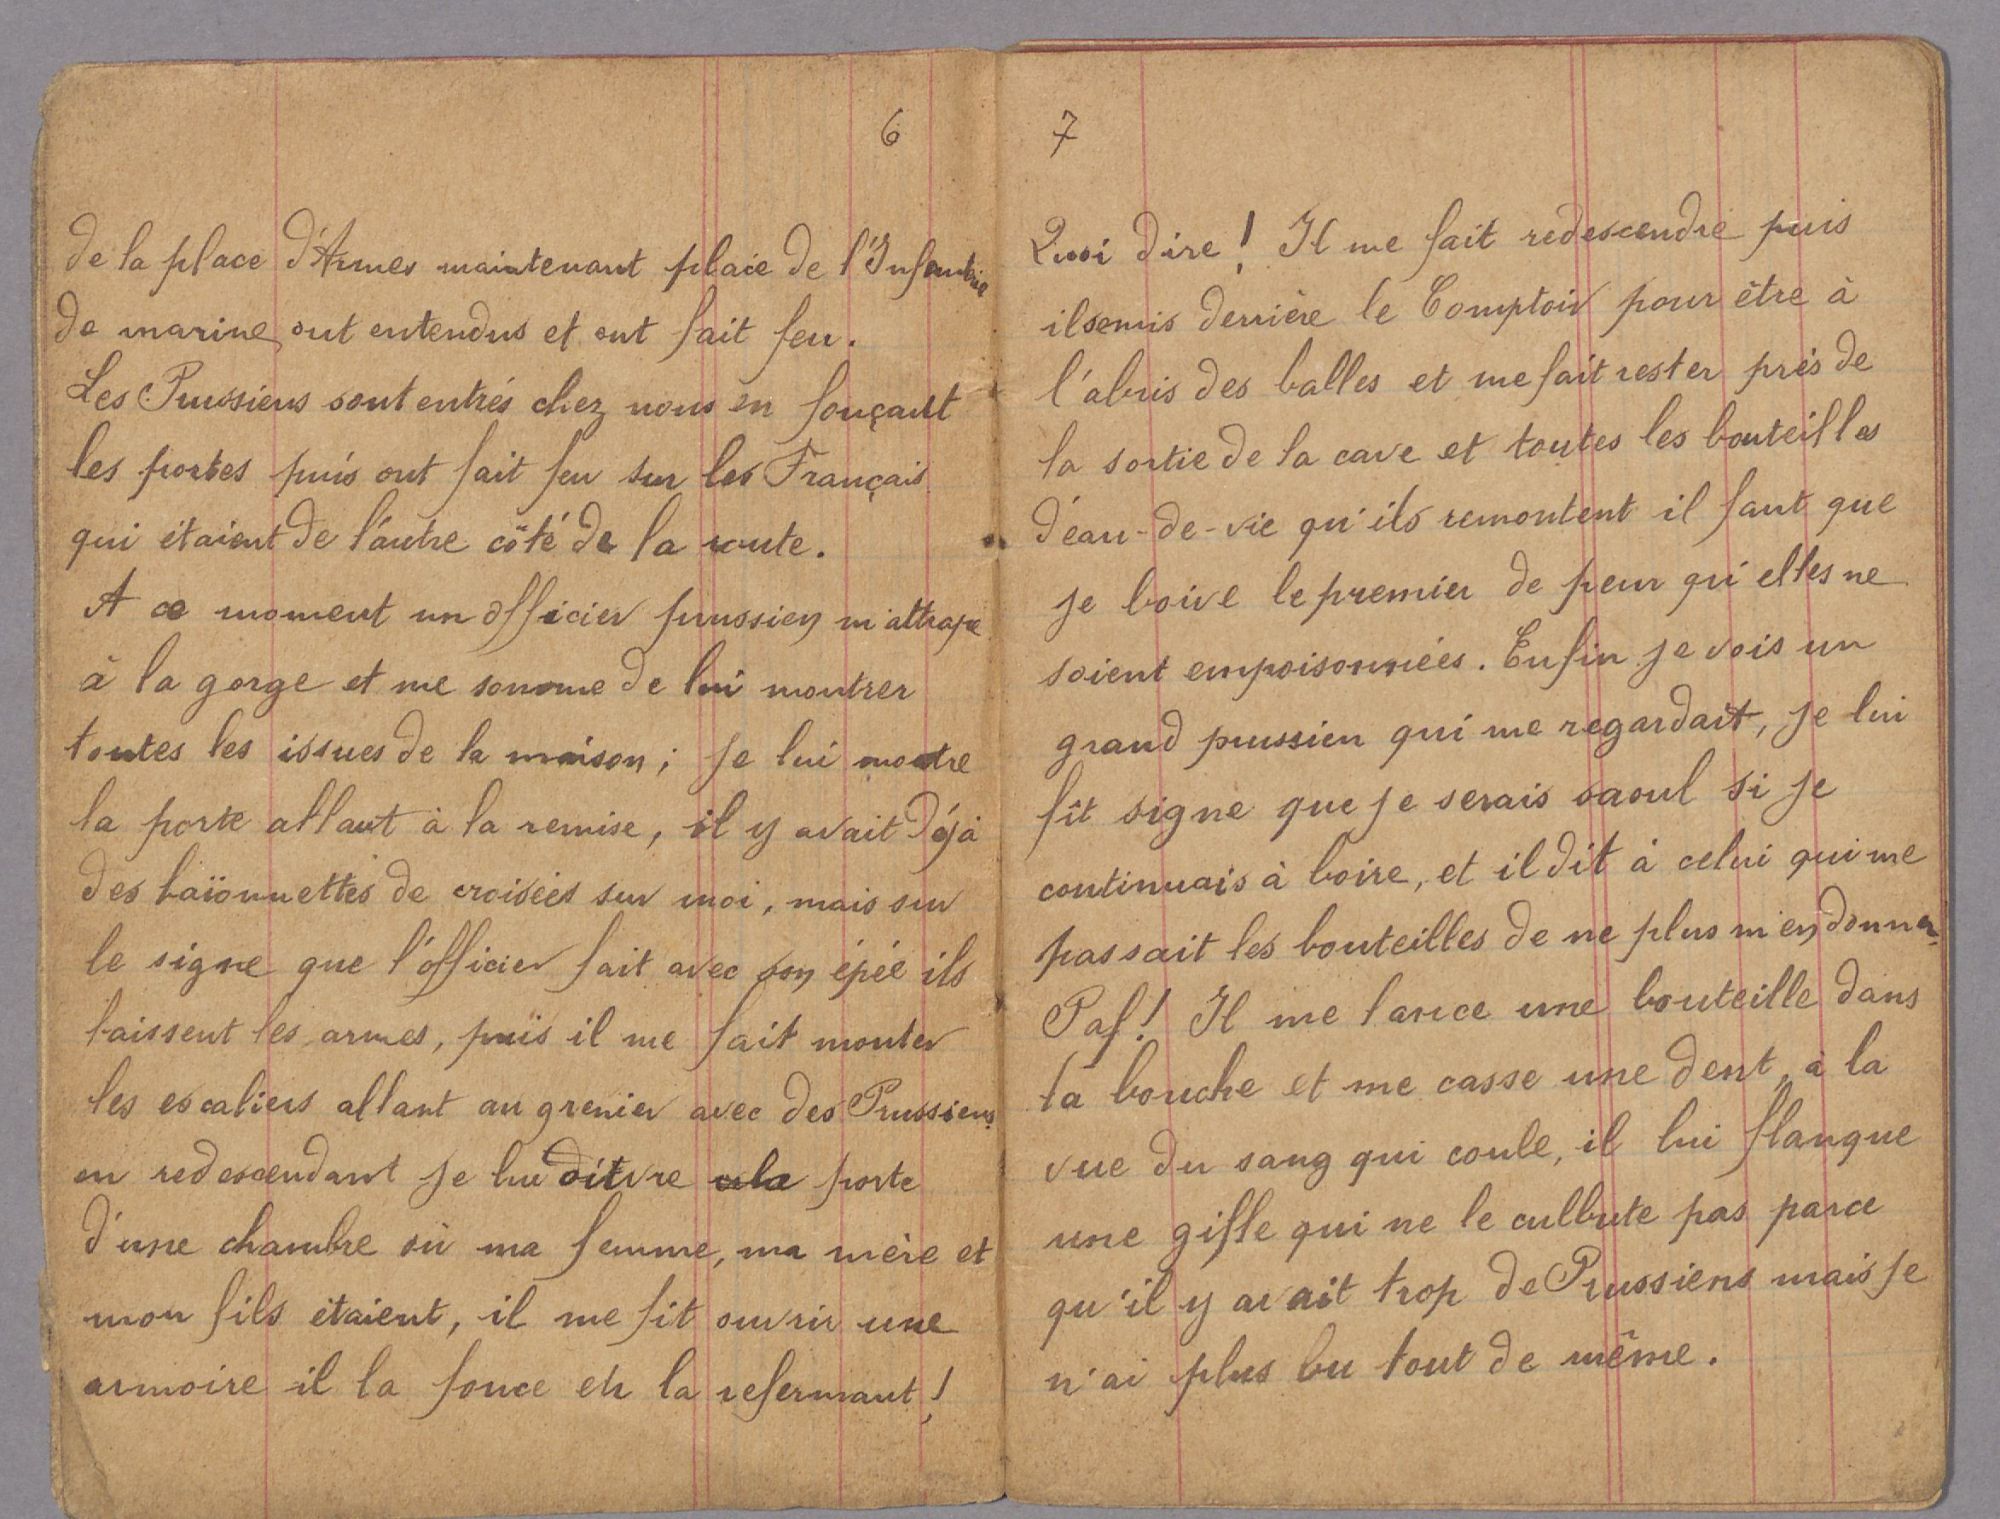 6
de la place d'Armes maintenant place de l'Infanterie
de marine, ont entendus et ont fait feu.
Les Prussiens sont entrés chez nous en fonçant
les portes puis ont fait feu sur les Français
qui étaient de l'autre côté de la route.
A ce moment un officier prussien m'attrape
à la gorge et me somme de lui montrer
toutes les issues de la maison ; je lui montre
la porte allant à la remise, il y avait déjà
des baïonnettes de croisées sur moi, mais sur
le signe que l'officier fait avec son épée ils
baissent les armes, puis il me fait monter
les escaliers allant au grenier avec des Prussiens
en redescendant je lui porte
d'une chambre où ma femme, ma mère et
mon fils étaient, il me fit ouvrir une
armoire il la fonce en la refermant !
7
Quoi dire ! Il me fait redescendre puis
il se mis derrière le Comptoir pour être à
l'abris des balles et me fait rester près de
la sortie de la cave et toutes les bouteilles
d'eau-de-vie qu'ils remontent il faut que
je boive le premier de peur qu'elles ne
soient empoisonnées. Enfin je vois un
grand prussien qui me regardait, je lui
fît signe que je serais saoul si je
continuais à boire, et il dit à celui qui me
passait les bouteilles de ne plus m'en donner
Paf ! Il me lance une bouteille dans
la bouche et me casse une dent, à la
vue du sang qui coule, il lui flanque
une gifle qui ne le culbute pas parce
qu'il y avait trop de Prussiens mais je
n'ai plus bu tout de même.